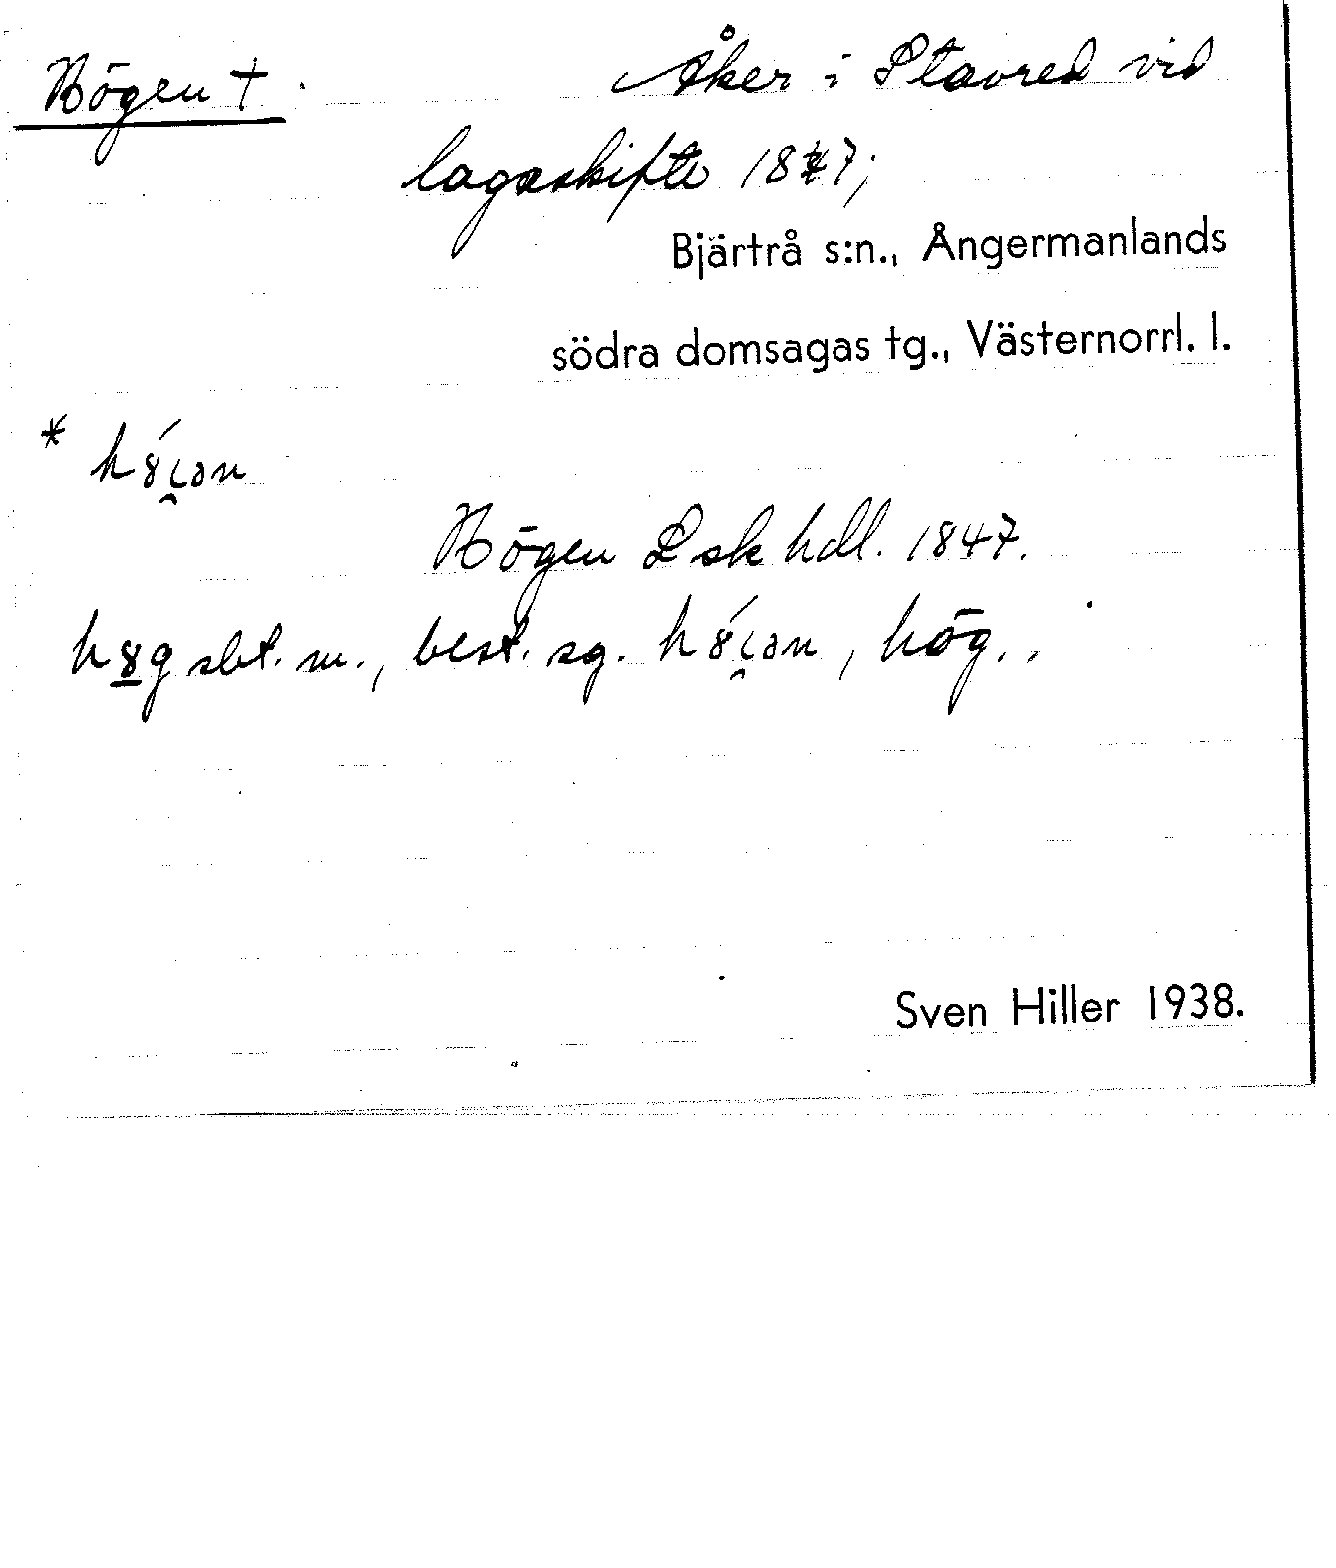 Högen † . Åker i Stavred vid
lagaskifte 1847;
Bjärtrå s:n., Ångermanlands
södra domsagas tg., Västernorrl. l.
*
Högen Lsk hdl. 1847.
sbt. m., best. sg. , hög.
Sven Hiller 1938.